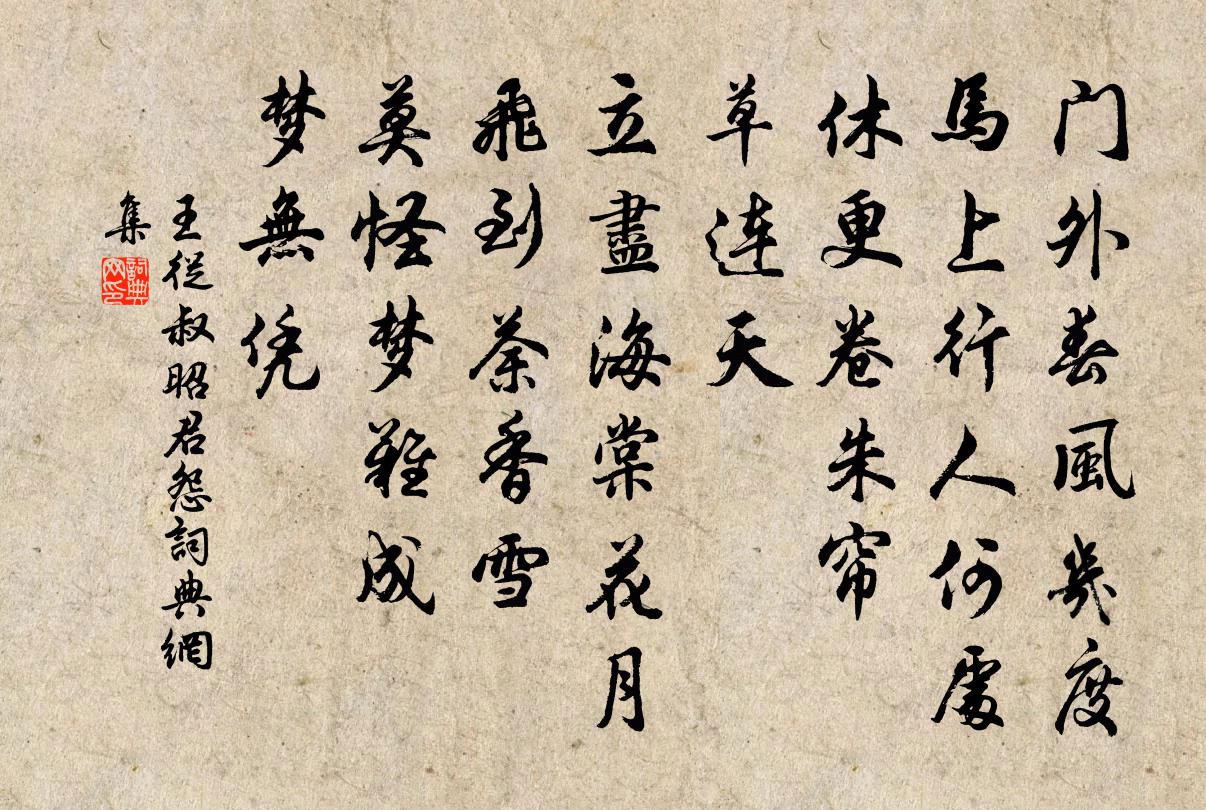 门外春風幾度
馬上行人何處
休更卷朱帘
草连天
立盡海棠花月
飛到荼香雪
莫怪梦難成
梦無凭
王從叔昭君怨詞典網
集
詞典
网印